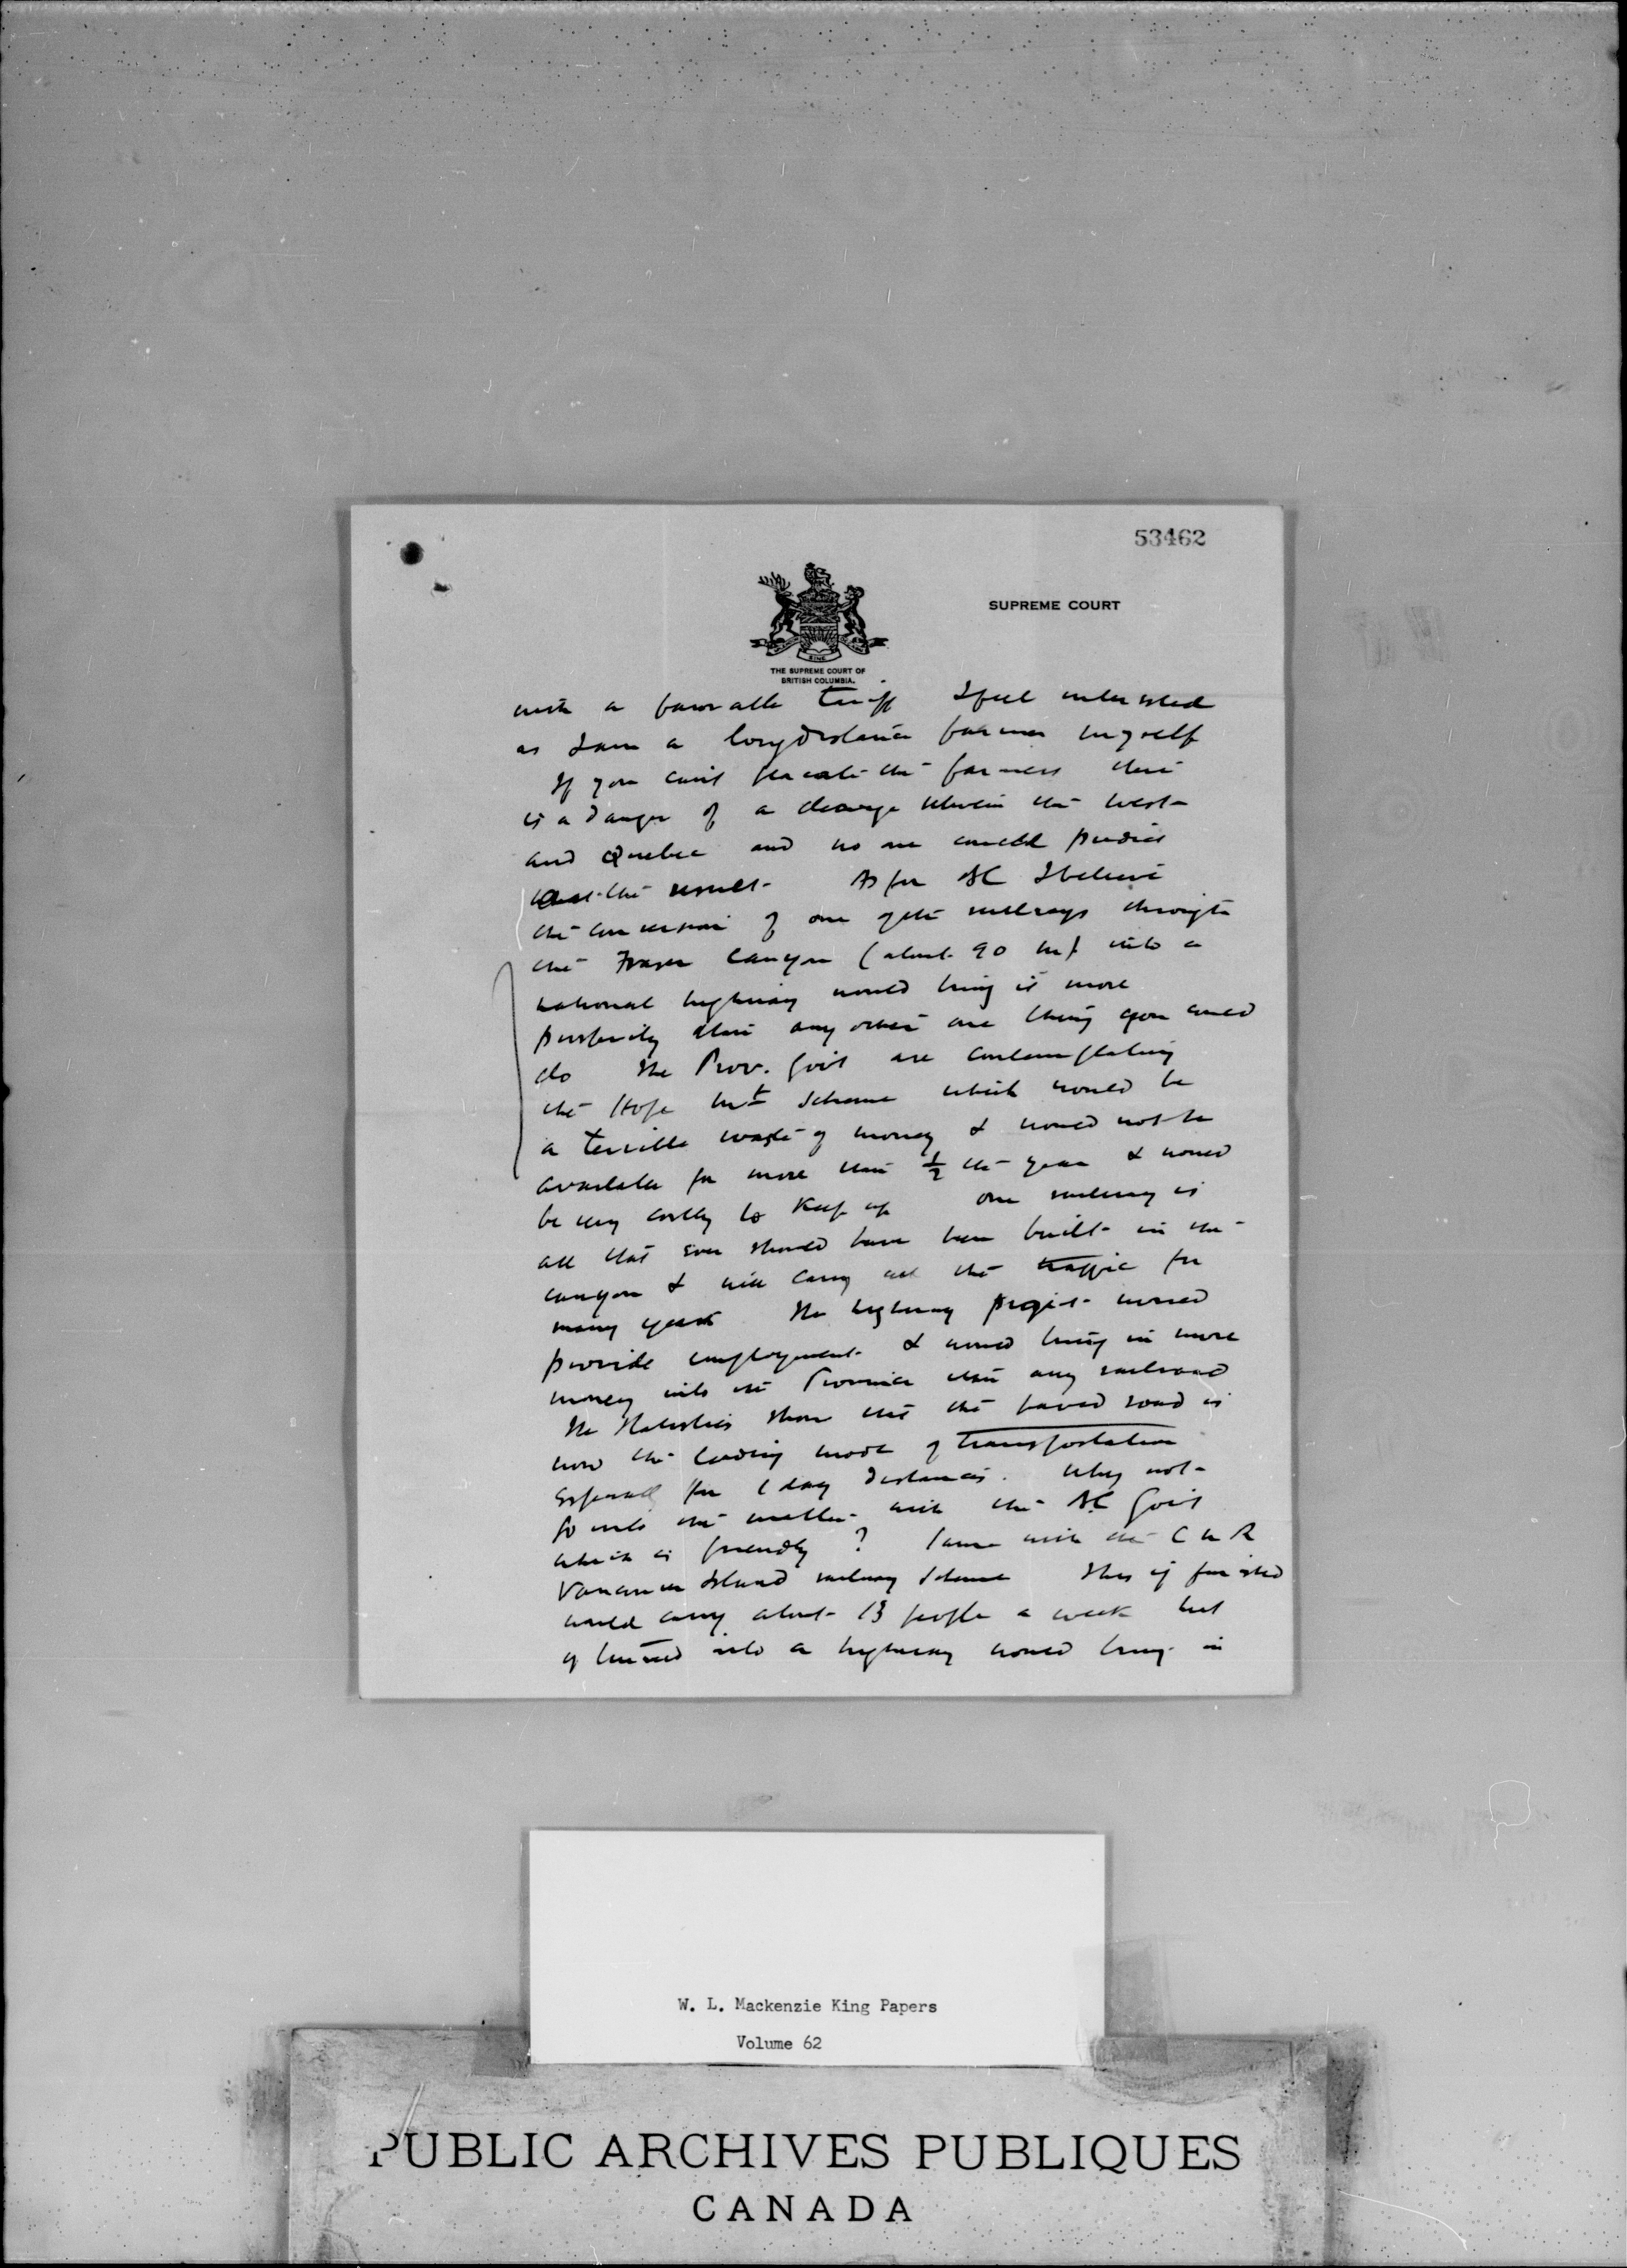 53462
SUPREME COURT
THE SUPREME COURT OF
BRITISH COLUMBIA.
with a favorable tariff I feel interested
as I am a long distance farmer myself
If you can't placate the farmers there
is a danger of a cleavage between the West
and Quebec and no one could predict
the result. As for BC I believe
the conversion of one of the railways through
the Fraser Canyon (about 90 m) into a
national highway would bring it more
prosperity than any other one thing you could
do The Prov. Govt are contemplating
the Hope Mt Scheme which would be
a terrible waste of money & would not be
available for more than ½ the year & would
be very costly to keep up one railway is
all that ever should have been built in the
canyon & will carry all the traffic for
many years The highway project would
provide employment & would bring in more
money into the Province than any railroad
The Statistics show that the paved road is
now the leading mode of transportation
especially for 1 day distances. Why not
go into the matter with the BC Govt
which is friendly? Same with the C N R
Vancouver Island railway scheme This if finished
would carry about 13 people a week but
if turned into a highway would bring in
W. L. Mackenzie King Papers
Volume 62
PUBLIC ARCHIVES PUBLIQUES
CANADA